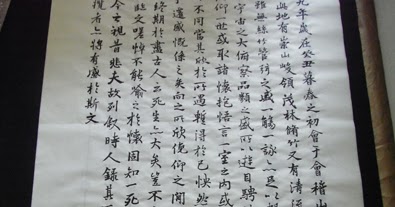 九年歲在癸丑暮春之初會于會稽山
此地有崇山峻領茂林脩竹又有清流
雖無絲竹管弦之盛一觴一詠亦足以
宇宙之大俯察品類之盛所以遊目騁
仰一世或取諸懷抱悟言一室之內或
不同當其欣於所遇暫得於己快然
遷感慨係之矣向之所欣俛仰之閒
終期於盡古人云死生亦大矣豈不
臨文嗟悼不能喻之於懷固知一死
今之視昔悲夫故列叙時人錄其
攬者亦將有感於斯文